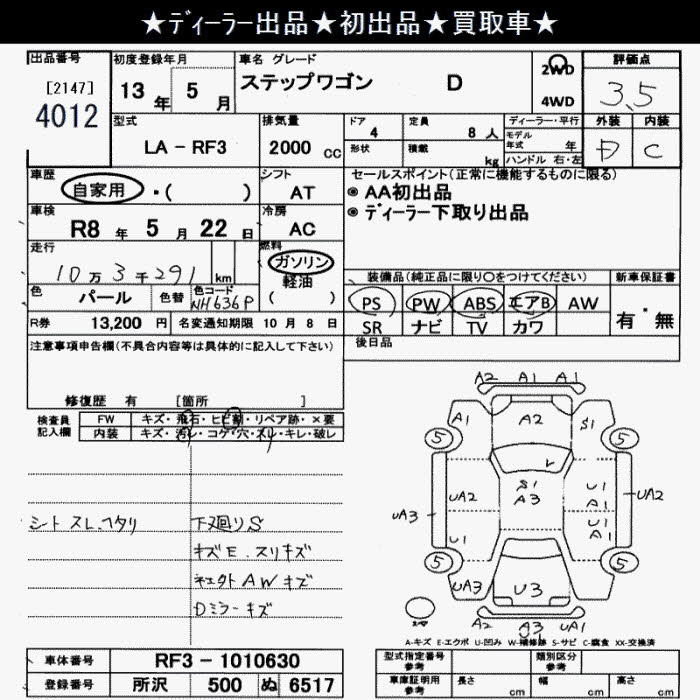 ★ディーラー出品★初出品★買取車★
出品番号 初度登録年月 車名 グレード 評価点
[2147] 13年 5月 ステップワゴン D 2WD 3.5
4012 4WD
型式 排気量 ドア 定員 ディーラー・平行 外装 内装
LA-RF3 2000cc 4 8人 モデル年式 年 C
形状 積載 kg ハンドル 右・左
車歴 シフト セールスポイント(正常に機能するものに限る)
自家用・( ) AT ◉AA初出品
車検 冷房 ◉ディーラー下取り出品
R8年 5月 22日 AC
走行 燃料
10万3千291km ガソリン
軽油 装備品(純正品に限り○をつけてください) 新車保証書
色 パール 色替 色コード NH636P ( ) PS PW ABS エアB AW 有・無
R券 13,200円 名変通知期限 10月8日 SR ナビ TV カワ
注意事項申告欄(不具合内容等は具体的に記入して下さい) 後日品
修復歴 有 [箇所 ]
検査員記入欄 FW キズ・飛石・ヒビ割・リペア跡・×要
内装 キズ・汚レ・コゲ・穴・スレ・キレ・破レ
シート スレ、ヘタリ 下廻りS
キズE、スリキズ
AWキズ
Dミラーキズ
A2 A1 A1
A1 A2 S1
5 5
S1 U1
UA2 A3 A1 UA2
UA3 U1
U1 A1
5 5
UA3 U3
A2 A3 UA1
A-キズ E-エクボ U-凹み W-補修跡 S-サビ C-腐食 XX-交換済
車体番号 RF3-1010630 型式指定番号参考 類別区分参考
登録番号 所沢 500 ぬ 6517 車庫証明用参考 長さ cm 幅 cm 高さ cm